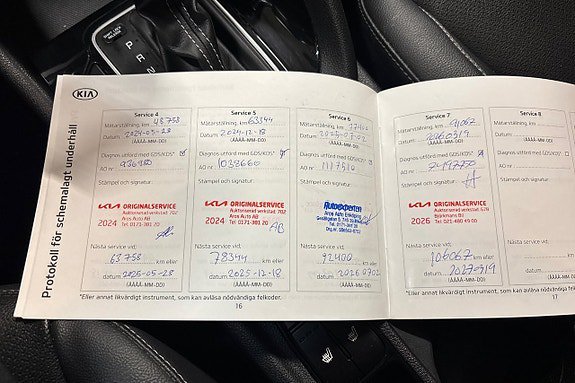 SHIFT LOCK
RELEASE
P
R
N
KIA
Protokoll för schemalagt underhåll
Service 4
Mätarställning, km 48758
Datum 2024-05-28
(ÅÅÅÅ-MM-DD)
Diagnos utförd med GDS/KDS*
AO nr 936480
Stämpel och signatur:
KIA ORIGINALSERVICE
Auktoriserad verkstad 702
Aros Auto AB
2024 Tel 0171-381 20
Nästa service vid:
63758 km eller
datum 2026-05-28
(ÅÅÅÅ-MM-DD)
Service 5
Mätarställning, km 63344
Datum 2024-12-18
(ÅÅÅÅ-MM-DD)
Diagnos utförd med GDS/KDS*
AO nr 1038660
Stämpel och signatur:
KIA ORIGINALSERVICE
Auktoriserad verkstad 702
Aros Auto AB
2024 Tel 0171-381 20
AB
Nästa service vid:
78344 km eller
datum 2025-12-18
(ÅÅÅÅ-MM-DD)
Service 6
Mätarställning, km 77400
Datum 2025-07-02
(ÅÅÅÅ-MM-DD)
Diagnos utförd med GDS/KDS*
AO nr 1117510
Stämpel och signatur:
Autoexperten
Aros Auto Enköping
Nästa service vid:
92400 km eller
datum 20260702
(ÅÅÅÅ-MM-DD)
*Eller annat likvärdigt instrument, som kan avläsa nödvändiga felkoder.
16
Service 7
Mätarställning, km 91067
Datum 20260319
(ÅÅÅÅ-MM-DD)
Diagnos utförd med GDS/KDS*
AO nr
Stämpel och signatur:
KIA ORIGINALSERVICE
Auktoriserad verkstad 626
Björkmans BU
2026 Tel 021-480 49 00
Nästa service vid:
106067 km eller
datum 20270319
(ÅÅÅÅ-MM-DD)
Service 8
Mätarställning, km
Datum
(ÅÅÅÅ-MM-DD)
Diagnos utförd med
AO nr
Stämpel och signatur:
Nästa service vid:
datum
(ÅÅÅÅ-MM-DD)
*Eller annat likvärdigt instrument, som kan avläsa nödvändiga
17